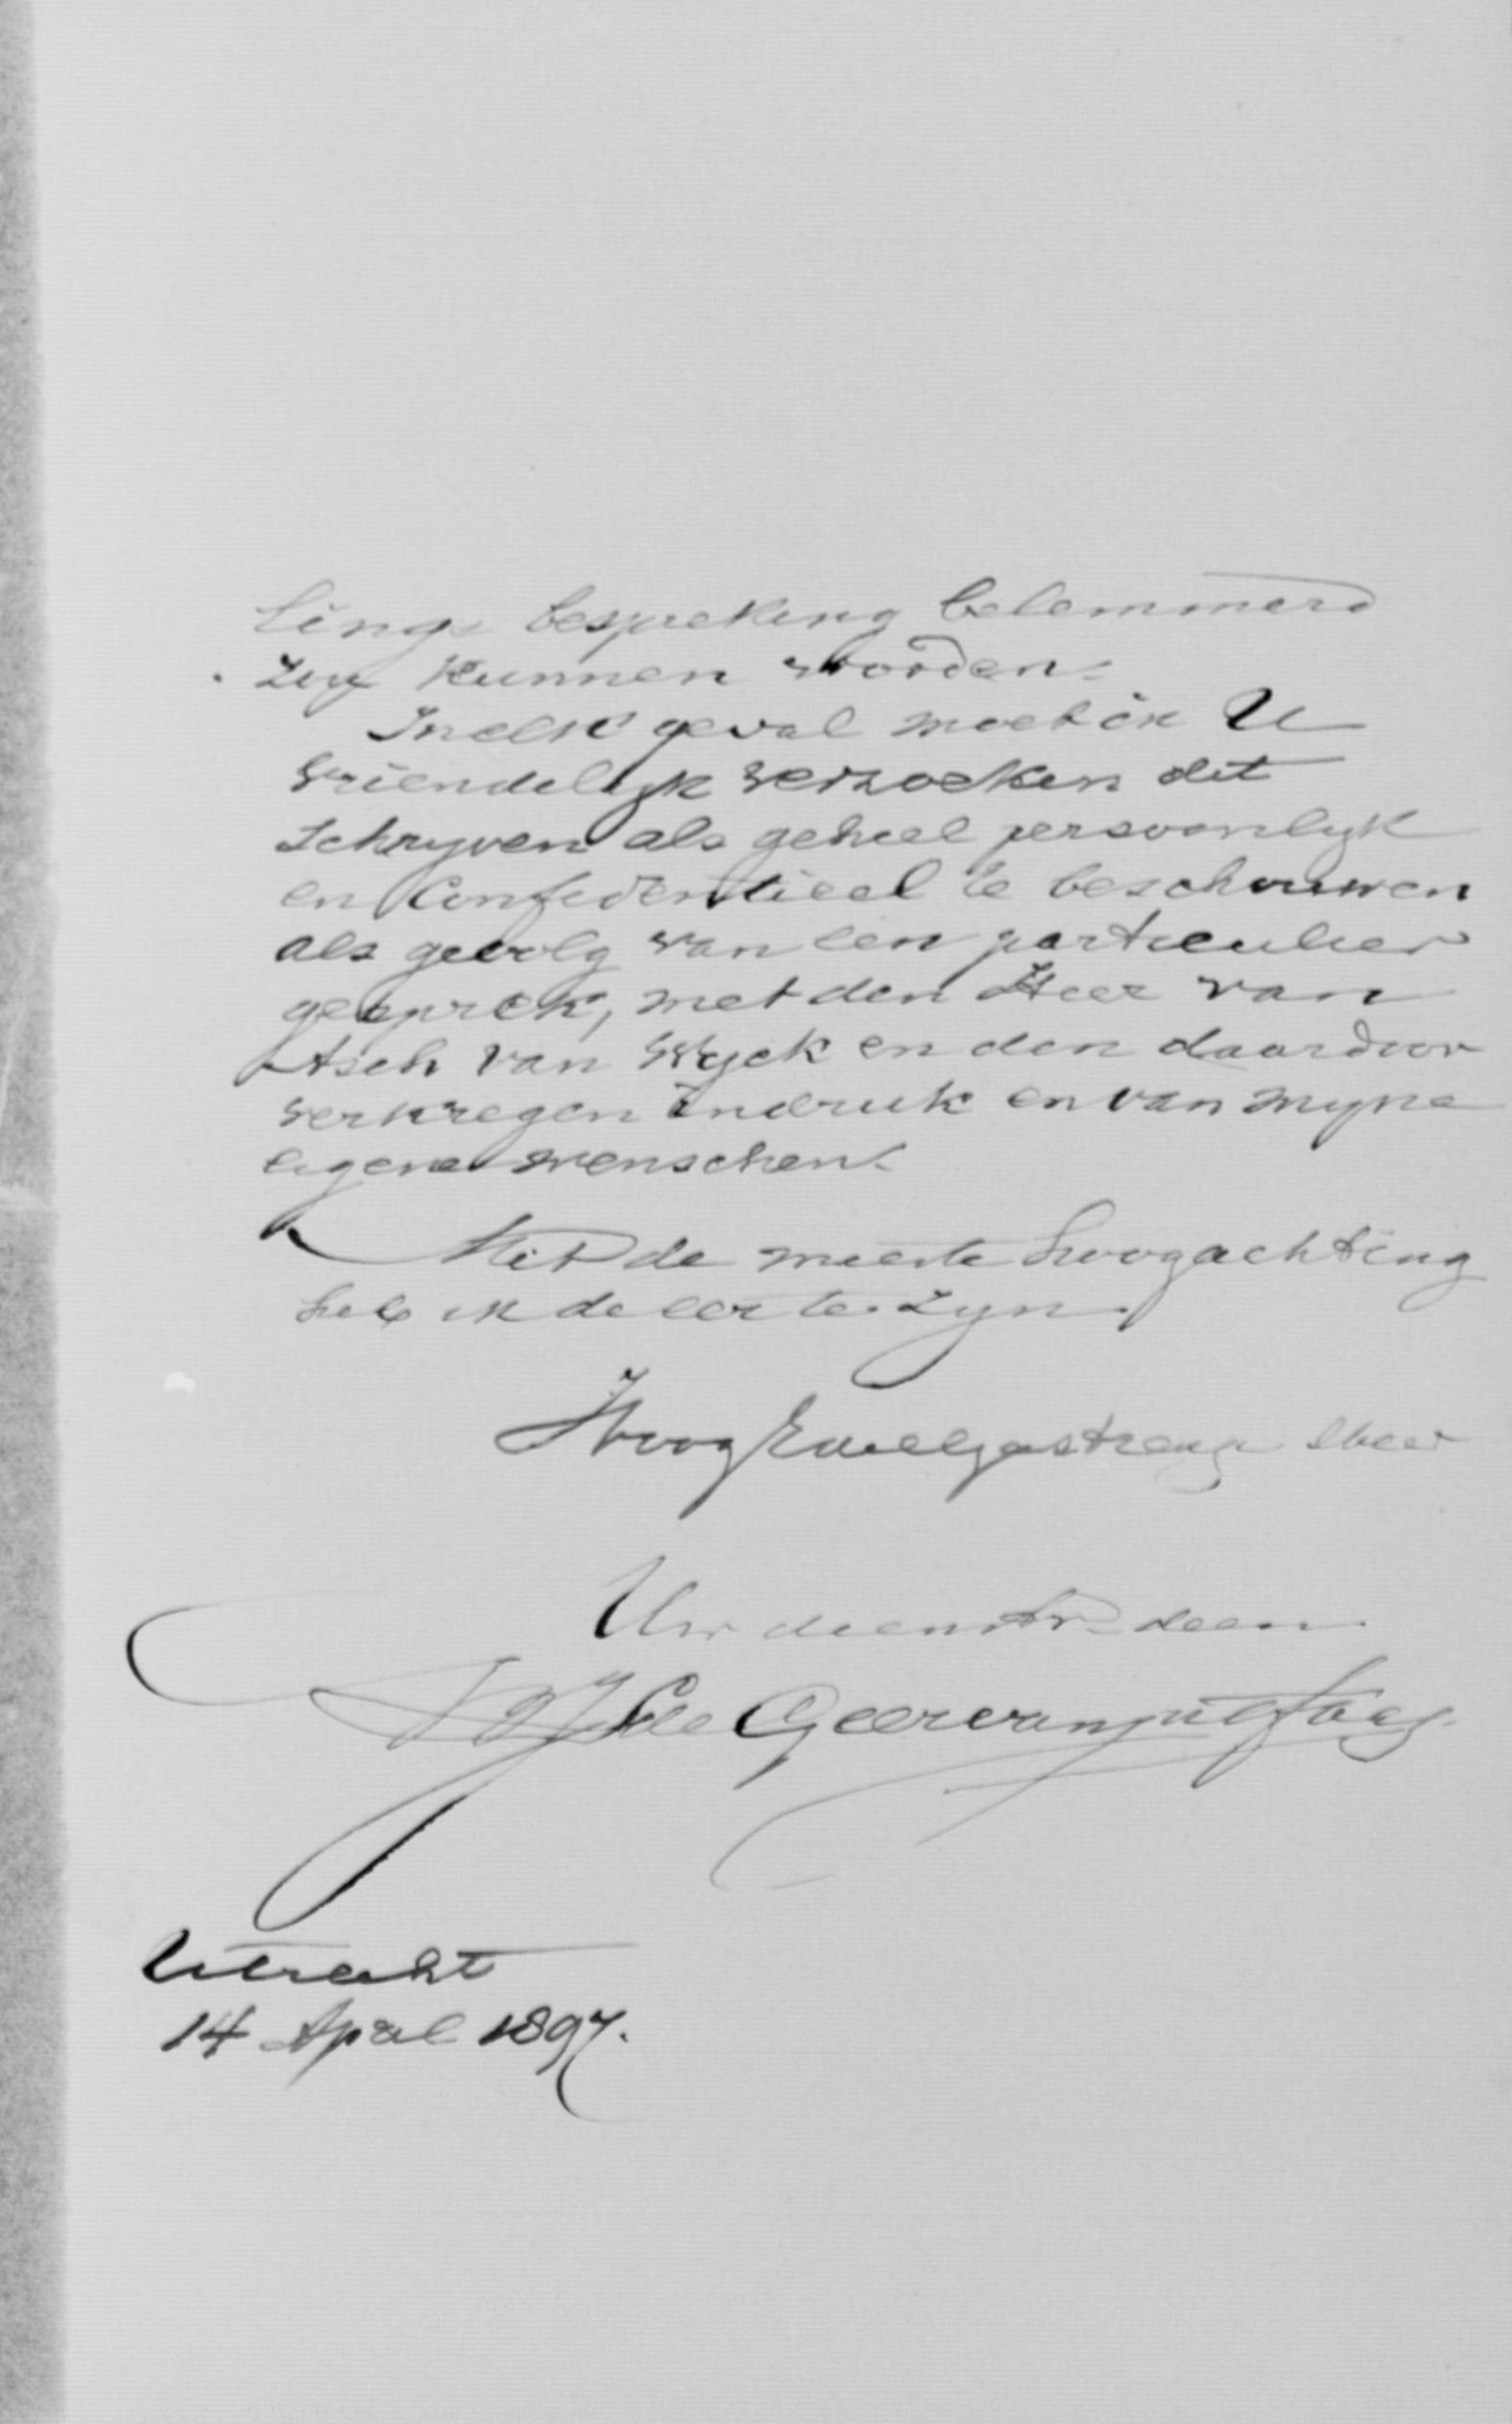 lings bespreking belemmerd
zou kunnen worden.
In elk geval moet ik U
vriendelyk verzoeken dit
schryven als geheel persoonlyk
en Confidentieel te beschouwen
als gevolg van een particulier
gesprek, met den Heer van
Asch van Wyck en den daardoor
verkregen indruk en van myne
eigene wenschen.
Met de meeste hoogachting
heb ik de eer te zyn.
HoogEdelgestrenge Heer
Uw dienstw. dien.
de Geer van Jutfaas
Utrecht
14 April 1897.